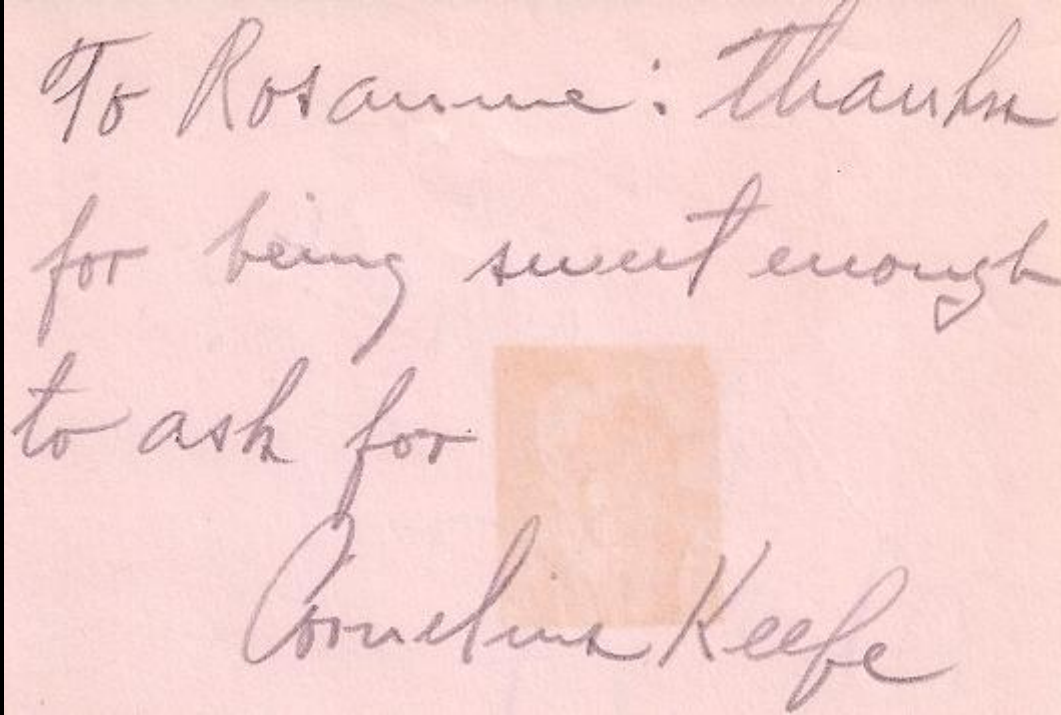 To Rosanne: Thanks
for being sweet enough
to ask for
Cornelius Keefe